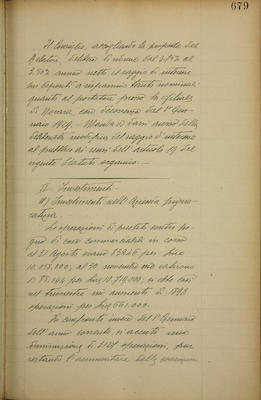 679
Il Consiglio, accogliendo la proposta del
Relatore, delibera di elevare dal
3.50% annuo netto il saggio di interesse
sui depositi a risparmio
quanti al portatore presso la filiale
di Novara, con decorrenza dal 1° Gen-
naio 1929. - Manda a darsi avviso della
modifica del saggio d'interesse
al pubblico ai sensi dell'articolo 19 del
vigente Statuto organico. -
II - Investimenti
a) Investimenti nell'Azienda pigno-
ratizia.
Le operazioni di prestito contro pe-
gno di cose commerciabili in corso
al 31 Agosto erano per Lire
10.158.000; al 30 novembre ne
per Lire 10.719.000; si ebbe così
nel trimestre un aumento di 1898
operazioni per Lire 561.000.
In confronto invece del 1° Gennaio
dell'anno corrente si accenta una
diminuzione di 2124 operazioni, pur
restando l'ammontare della